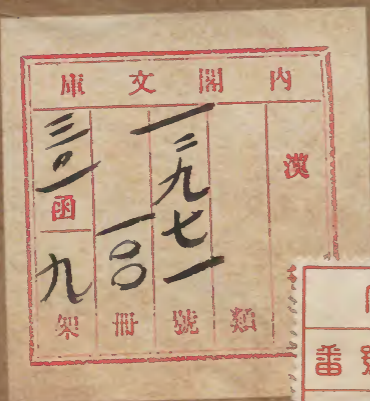 内閣文庫
漢
類
一二九七一號
一〇〇冊
三〇一函
九架
番